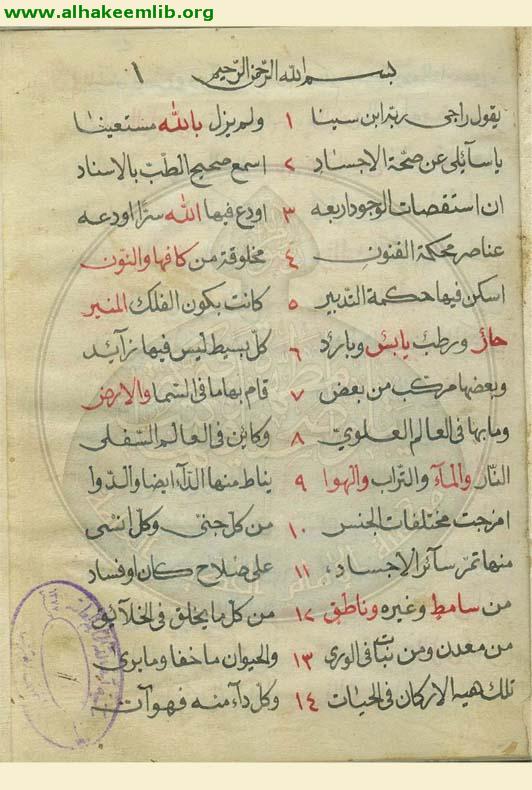 www.alhakeemlib.org
بسم الله الرحمن الرحيم ١
يقول راجى ربه ابن سينا ١ ولم يزل بالله مستعينا
يا سآئلى عن صحة الاجساد ٢ اسمع صحيح الطب بالاسناد
ان استقصات الوجود اربعه ٣ اودع فيها الله سرا اودعه
عناصر محكمة الفنون ٤ مخلوقة من كافها والنون
اسكن فيها حكمة التدبير ٥ كانت بكون الفلك المنير
حار ورطب يابس وبارد ٦ كل بسيط ليس فيها زآيد
وبعضها مركب من بعض ٧ قام بها ما فى السما والارض
وما بها فى العالم العلوي ٨ وكاين فى العالم السفلى
النار والمآء والتراب والهوا ٩ يناط منها الدآء ايضا والدوا
امزجت مختلفات الجنس ١٠ من كل جنى وكل انسى
منها تمر سآئر الاجساد ١١ على صلاح كان او فساد
من سامط وغيره وناطق ١٢ من كل ما يخلق فى الخلآيق
من معدن ومن نبات فى الورى ١٣ والحيوان ما خفا وما يرى
تلك هيه الاركان فى الحيات ١٤ وكل دآء منه فهو آت